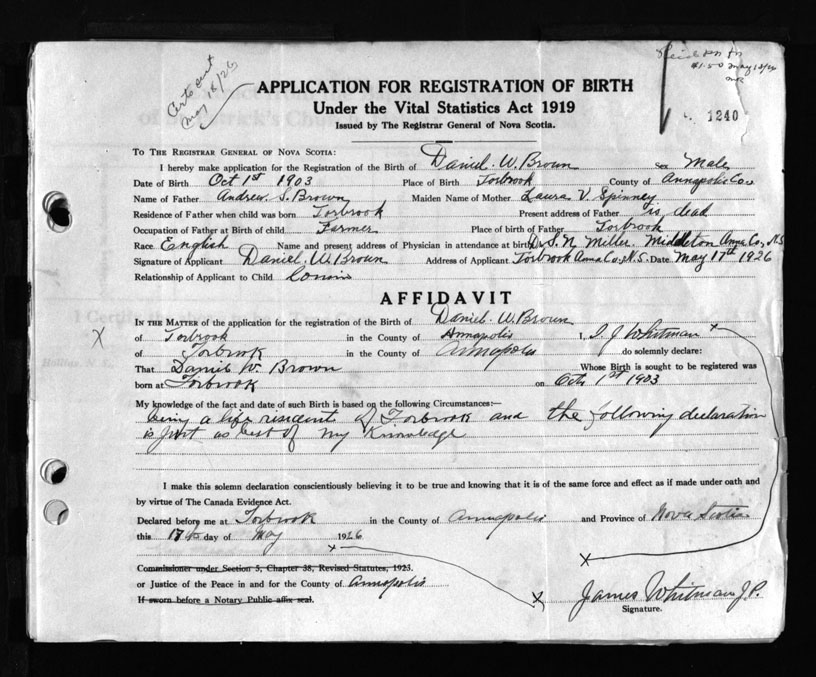 Certs sent
May 18/26
$1.50 May 18/26
1240
APPLICATION FOR REGISTRATION OF BIRTH
Under the Vital Statistics Act 1919
Issued by The Registrar General of Nova Scotia.
TO THE REGISTRAR GENERAL OF NOVA SCOTIA:
I hereby make application for the Registration of the Birth of Daniel. W. Brown Sex Male
Date of Birth Oct 1st 1903 Place of Birth Torbrook County of Annapolis Co
Name of Father Andrew. S. Brown Maiden Name of Mother Laura V. Spinney
Residence of Father when child was born Torbrook Present address of Father is dead
Occupation of Father at Birth of child Farmer Place of birth of Father Torbrook
Race English Name and present address of Physician in attendance at birth Dr S. N. Miller. Middleton Anna Co, N.S
Signature of Applicant Daniel. W. Brown Address of Applicant Torbrook Anna Co, N.S. Date May 17th 1926
Relationship of Applicant to Child
AFFIDAVIT
IN THE MATTER of the application for the registration of the Birth of Daniel. W. Brown
X of Torbrook in the County of Annapolis I, J Whitman x
of Torbrook in the County of Annapolis do solemnly declare:
That Daniel W. Brown Whose Birth is sought to be registered was
born at Torbrook on Oct 1st 1903
My knowledge of the fact and date of such Birth is based on the following Circumstances:—
being a life resident of Torbrook and the following declaration
is just as best of my Knowledge
I make this solemn declaration conscientiously believing it to be true and knowing that it is of the same force and effect as if made under oath and
by virtue of The Canada Evidence Act.
Declared before me at Torbrook in the County of Annapolis and Province of Nova Scotia
this 17th day of May 1926
x
X
Commissioner under Section 5, Chapter 38, Revised Statutes, 1923.
or Justice of the Peace in and for the County of Annapolis
If sworn before a Notary Public affix seal. X James Whitman J.P.
Signature.